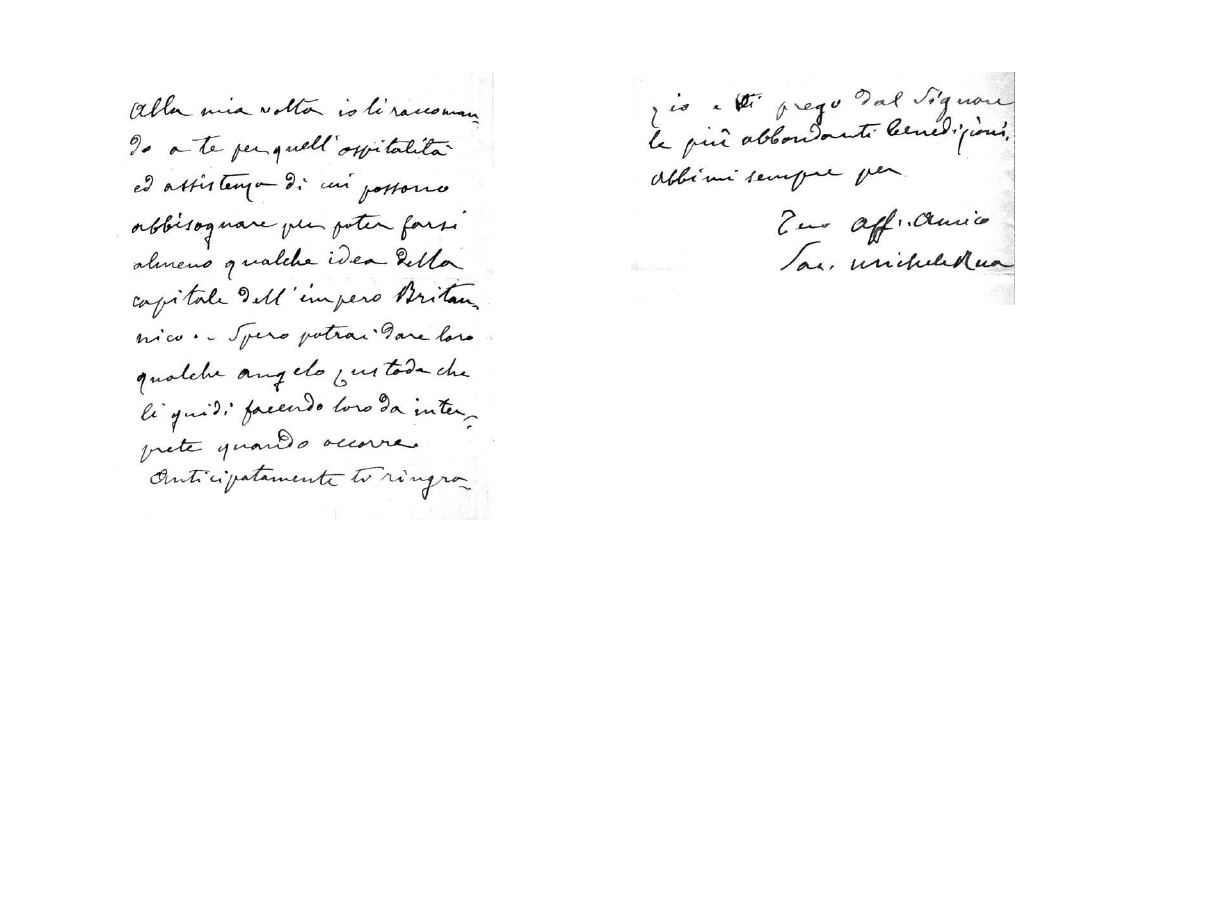 Alla mia volta io li raccoman-
do a te per quell'ospitalità
ed assistenza di cui possono
abbisognare per poter farsi
almeno qualche idea della
capitale dell'impero Britan-
nico. - Spero potrai dare loro
qualche angelo custode che
li guidi facendo loro da inter-
prete quando occorre
Anticipatamente ti ringra-
zio e ti prego dal Signore
le più abbondanti benedizioni.
Abbimi sempre per
Tuo aff. Amico
Sac. Michele Rua